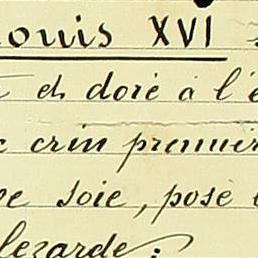 ouis XVI
et doré à l'é
crin premier
soie, posé
lezarde :